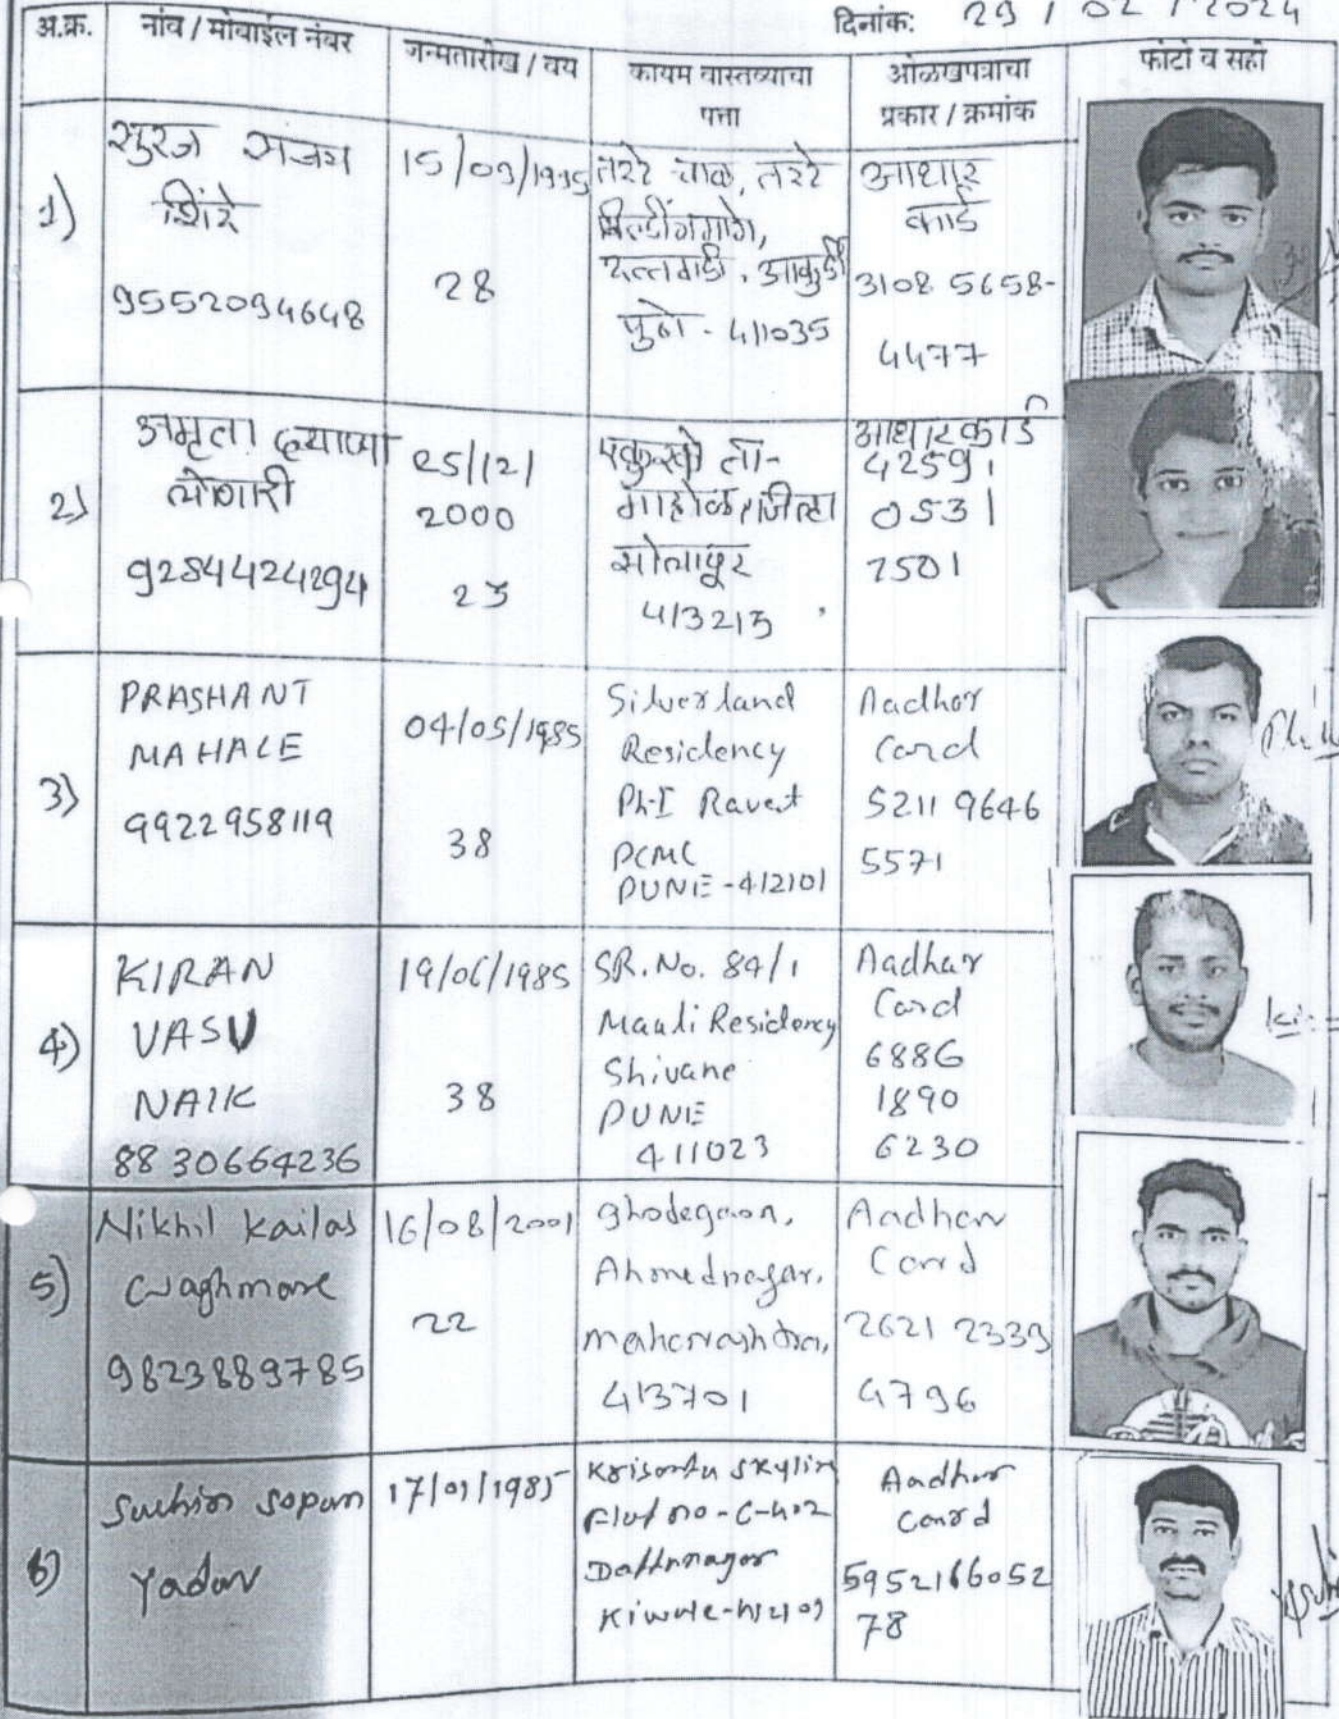 दिनांक: 29 / 02 / 2024
अ.क्र. नांव / मोबाईल नंबर जन्मतारीख / वय कायम वास्तव्याचा पत्ता ओळखपत्राचा प्रकार / क्रमांक फोटो व सही
1)
सुरज संजय
शिंरे
9552094648
15/09/1995
28
तरटे चाळ, तरटे
बिल्डींगमागे,
दत्तवाडी, आकुर्डी
पुणे - 411035
आधार
कार्ड
3108 5658-
4477
2)
अमृता
9284424294
25/12/
2000
23
जिल्हा
सोलापूर
413213
आधारकार्ड
4259
0531
7501
3)
PRASHANT
MAHALE
9922958119
04/05/1985
38
Silverland
Residency
Ph-I Ravet
PCMC
PUNE - 412101
Aadhar
Card
5211 9646
5571
4)
KIRAN
VASU
NAIK
8830664236
19/06/1985
38
SR.No. 84/1
Mauli Residency
Shivane
PUNE
411023
Aadhar
Card
6886
1890
6230
5)
Nikhil Kailas
Waghmare
9823889785
16/08/2001
22
Ghodegaon,
Ahmednagar,
Maharashtra,
413701
Aadhar
Card
2621 2333
4796
6)
Sachin Sopan
Yadav
17/01/1985
Flat no - C-402
Dattnagar
Aadhar
Card
5952166052
78